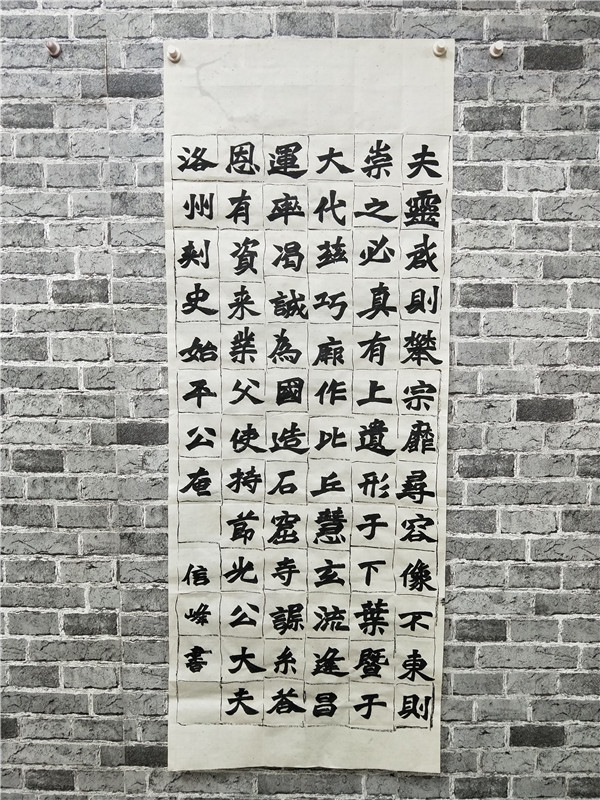 夫靈則攀宗靡尋容像不東則
崇之必真有上遺形于下葉暨于
大代茲巧廊作比丘慧玄流逢昌
運率渴誠為國造石窟寺糸荅
恩有資来業父使持節光公大夫
洛州刺史始平公奄
信峰書